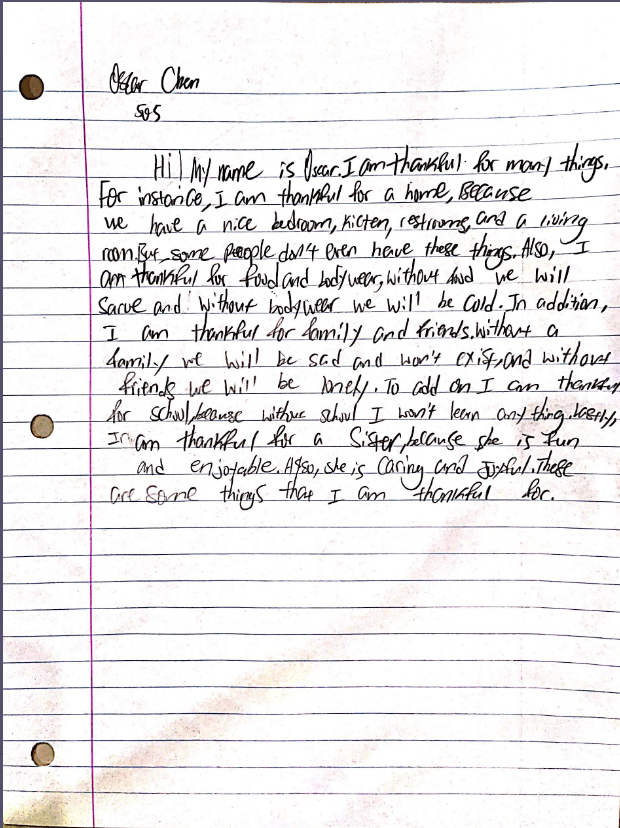 Oscar Chen
505
Hi! My name is Oscar. I am thankful for many things.
For instance, I am thankful for a home, Because
we have a nice bedroom, kicten, restrooms, and a living
room. But some people don't even have these things. Also, I
am thankful for food and bodywear, without food we will
sarve and without bodywear we will be cold. In addition,
I am thankful for family and friends. without a
family we will be sad and won't exist, and without
friends we will be lonely. To add on I am thankful
for school, because without school I won't learn any thing. Lastly,
I am thankful for a Sister, because she is fun
and enjoyable. Also, she is caring and Joyful. These
are some things that I am thankful for.